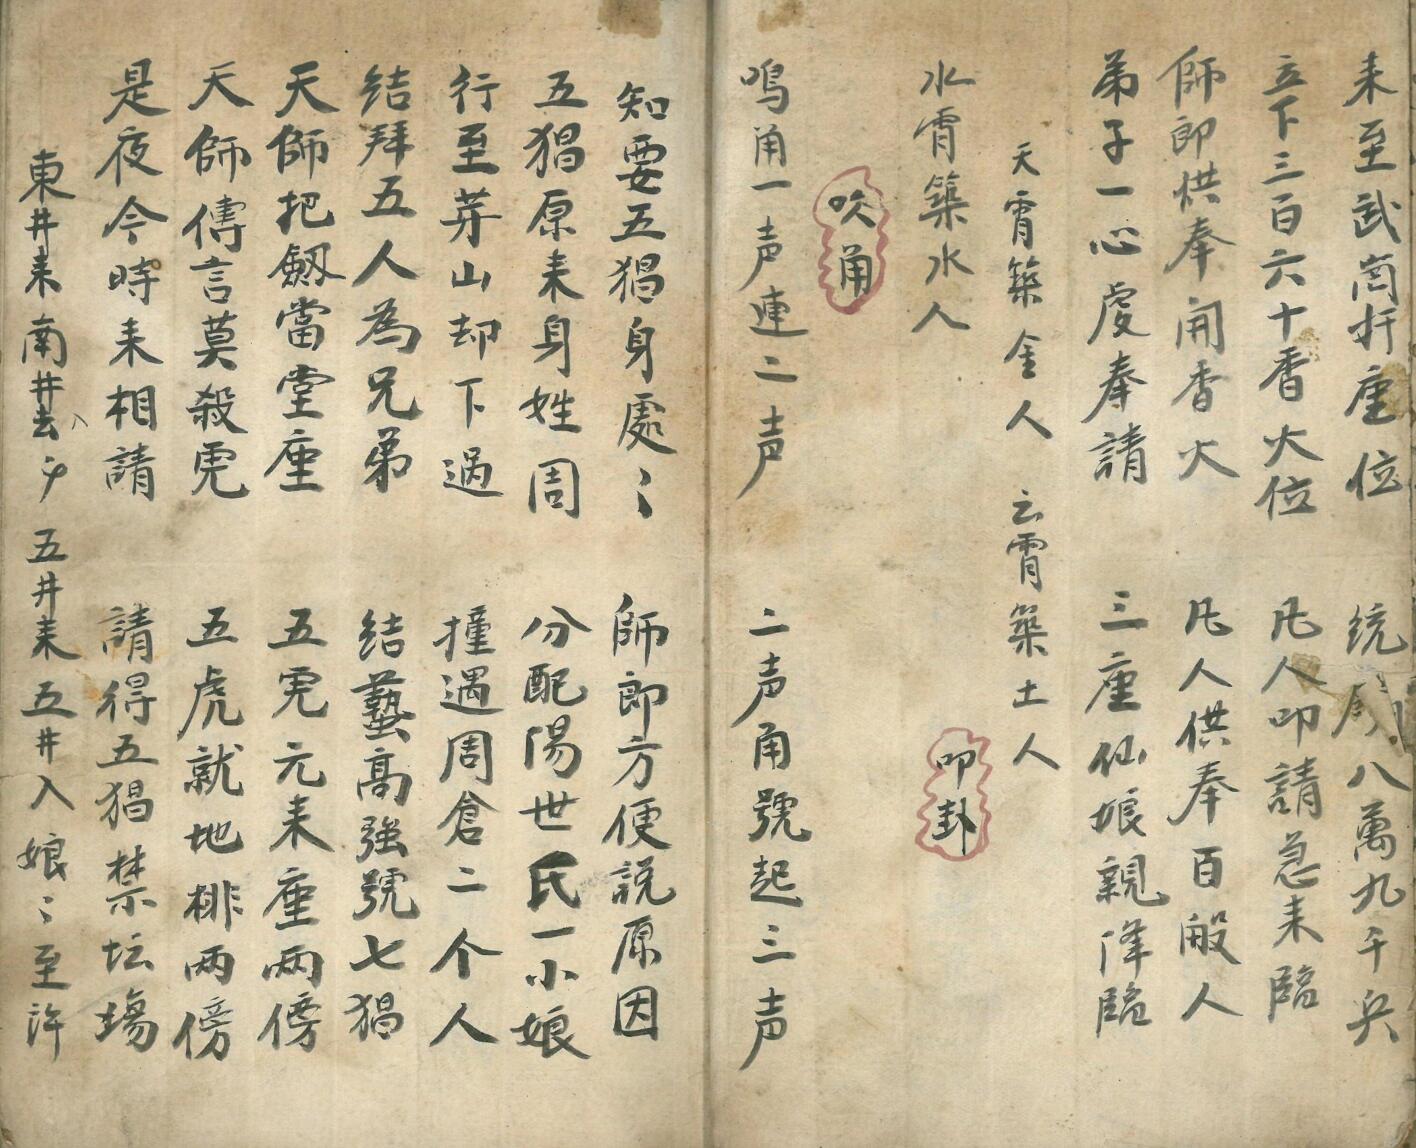 来至武崗扦座位 统朝八萬九千兵
立下三百六十香火位 凡人叩請急来臨
師郎烘奉開香火 凡人供奉百般人
弟子一心虔奉請 三座仙娘親降臨
天霄築金人 云霄築土人
水霄築水人 叩卦
吹角
鳴角一声連二声 二声角號起三声
知要五猖身處〻 師郎方便説原因
五猖原来身姓周 分配陽世氏一小娘
行至茅山却下過 撞遇周倉二个人
结拜五人為兄弟 结藝高強號七猖
天師把劔當堂座 五虎元来座兩傍
天師傳言莫殺虎 五虎就地排两傍
是夜今時来相請 請得五猖禁坛塲
東井来南井去 五井来五井入 娘〻至許